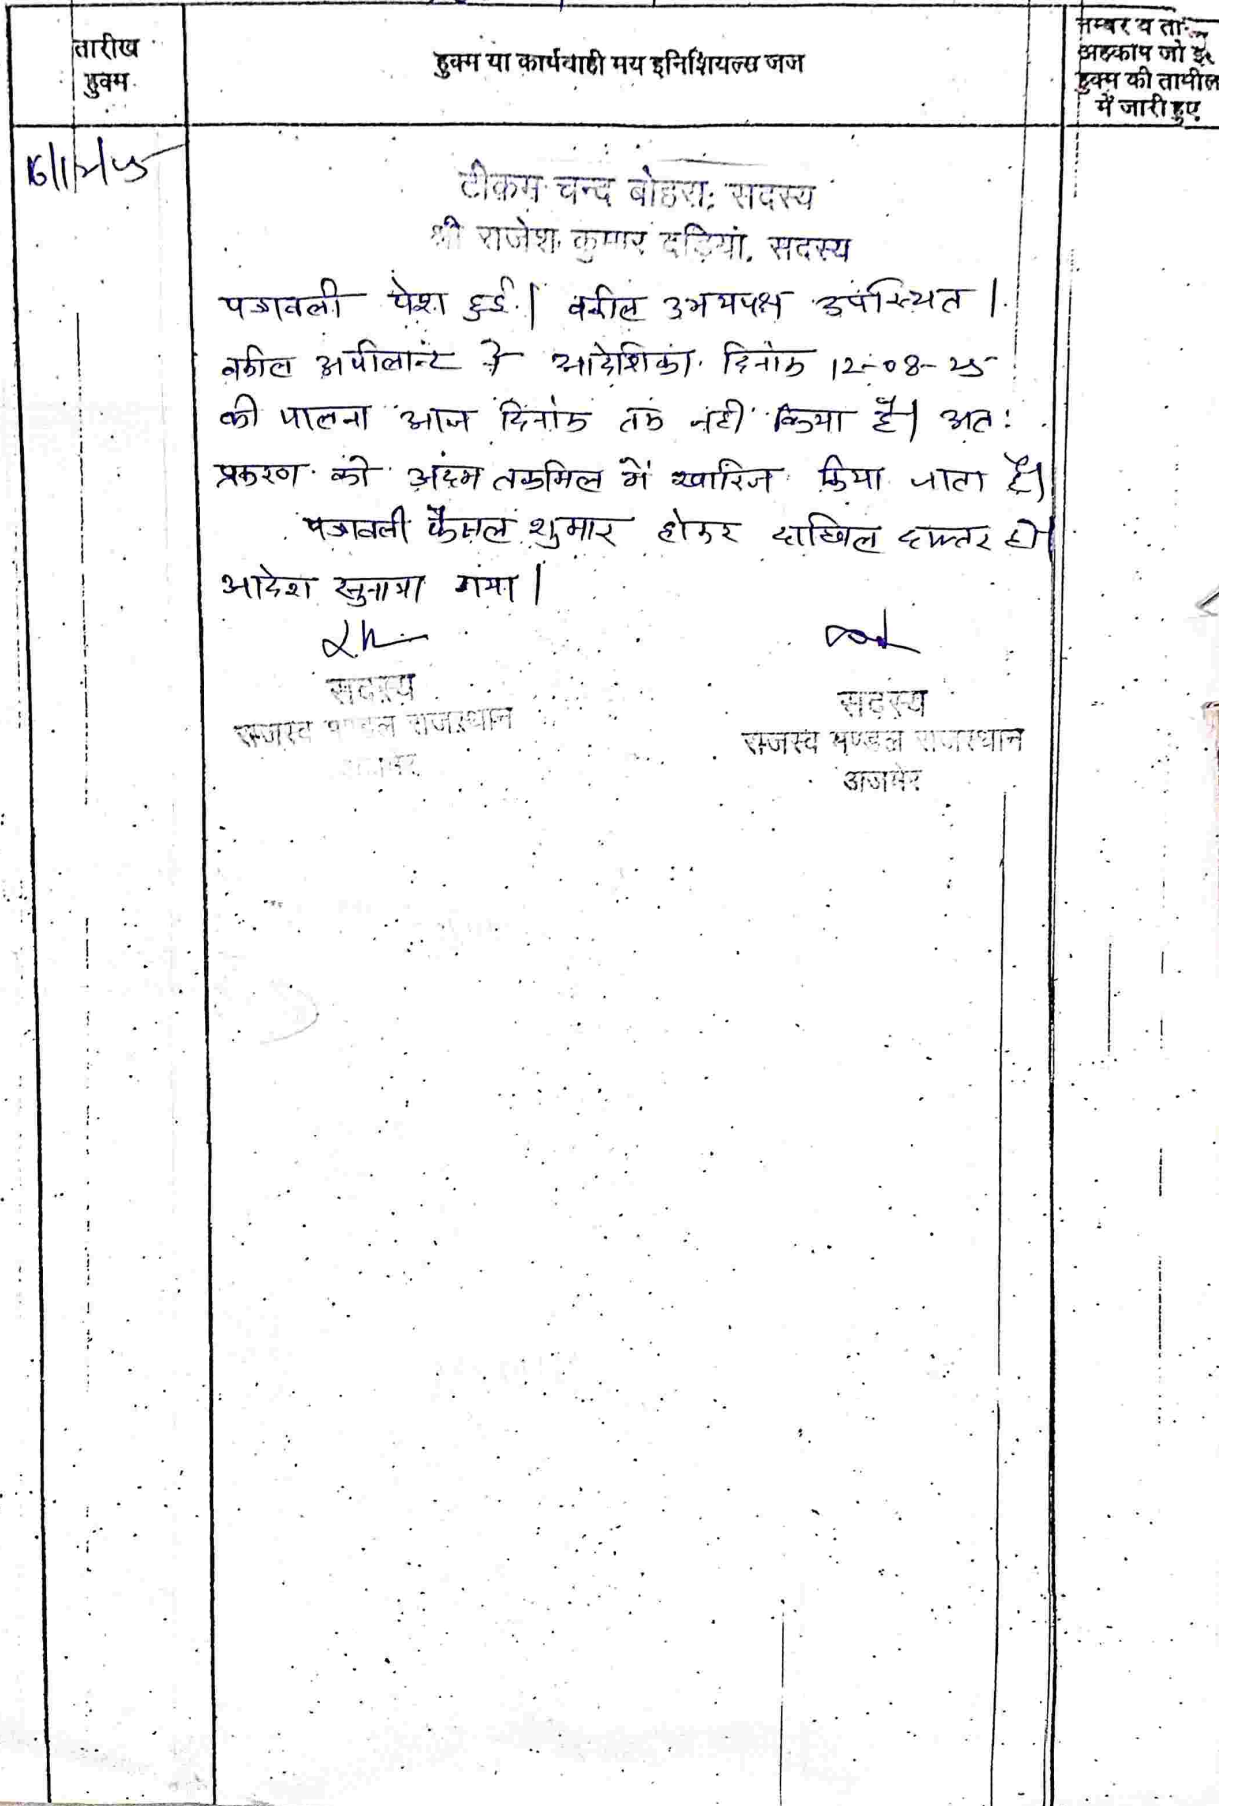 तारीख
हुक्म
हुक्म या कार्यवाही मय इनिशियल्स जज
नम्बर व ता
अहकाम जो इस
हुक्म की तामील
में जारी हुए
16/12/25
टीकम चन्द बोहरा, सदस्य
श्री राजेश कुमार दड़िया, सदस्य
पत्रावली पेश हुई। वकील उभयपक्ष उपस्थित।
वकील अपीलान्ट ने आदेशिका दिनांक 12-08-25
की पालना आज दिनांक तक नहीं किया है। अतः
प्रकरण को अदम तकमिल में खारिज किया जाता है।
पत्रावली फैसल शुमार होकर दाखिल दफ्तर हो।
आदेश सुनाया गया।
सदस्य
राजस्व मण्डल राजस्थान
अजमेर
सदस्य
राजस्व मण्डल राजस्थान
अजमेर